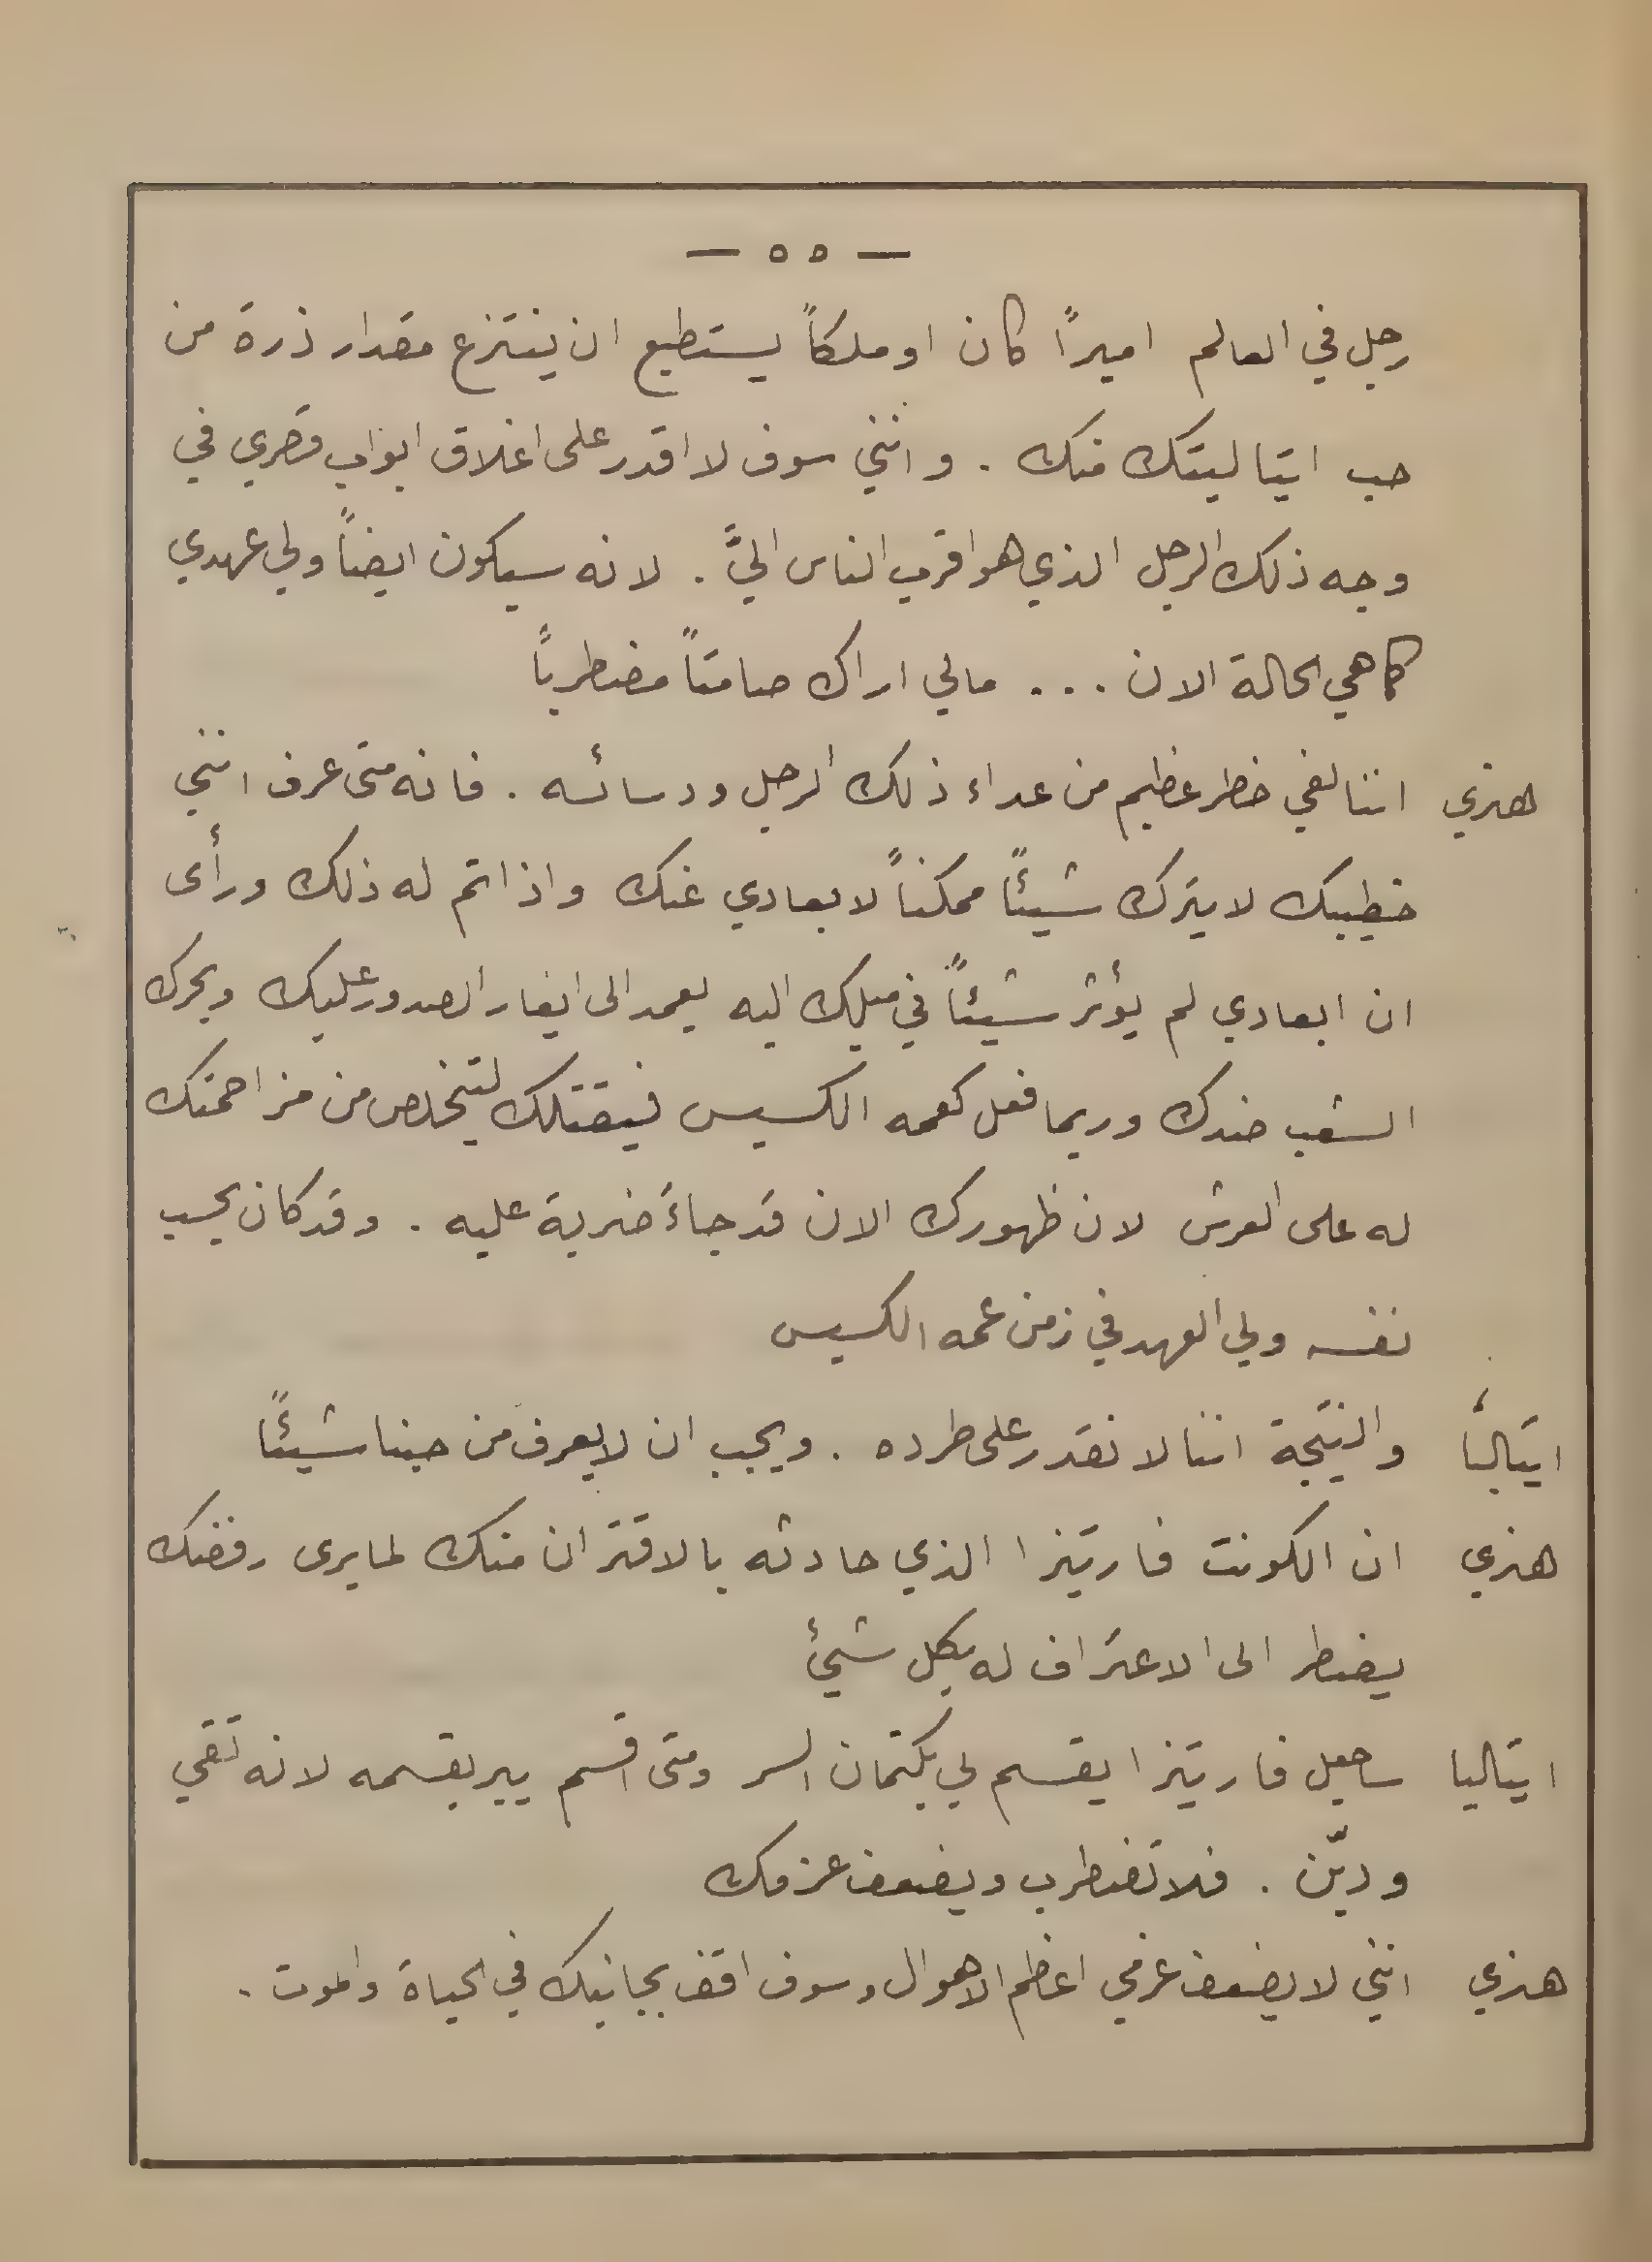 — ٥٥ —
رجل في العالم اميرًا كان او ملكاً يستطيع ان ينتزع مقدار ذرة من
حب ايتاليتك منك . وانني سوف لا اقدر على اغلاق ابواب قصري في
وجه ذلك الرجل الذي هو اقرب الناس اليَّ . لانه سيكون ايضاً ولي عهدي
كما هي الحالة الان ... مالي اراك صامتاً مضطرباً
هنري اننا لفي خطر عظيم من عداء ذلك الرجل ودسائسه . فانه متى عرف انني
خطيبك لا يترك شيئًا ممكناً لابعادي عنك واذا تم له ذلك ورأى
ان ابعادي لم يؤثر شيئاً في ميلك اليه يعمد الى ايغار الصدور عليك ويحرك
الشعب ضدك وربما فعل كعمه الكسيس فيقتلك ليتخلص من مزاحمتك
له على العرش لان ظهورك الان قد جاء ضربة عليه . وقد كان يحسب
نفسه ولي العهد في زمن عمه الكسيس
ايتاليا والنتيجة اننا لا نقدر على طرده . ويجب ان لا يعرف من حبنا شيئًا
هنري ان الكونت فارتيزا الذي حادثه بالاقتران منك لما يرى رفضك
يضطر الى الاعتراف له بكل شيئ
ايتاليا ساجعل فارتيزا يقسم لي بكتمان السر ومتى اقسم يبر بقسمه لانه تقي
وديّن . فلا تضطرب ويضعف عزمك
هنري انني لا يضعف عزمي اعاظم الاهوال وسوف اقف بجانبك في الحياة والموت .